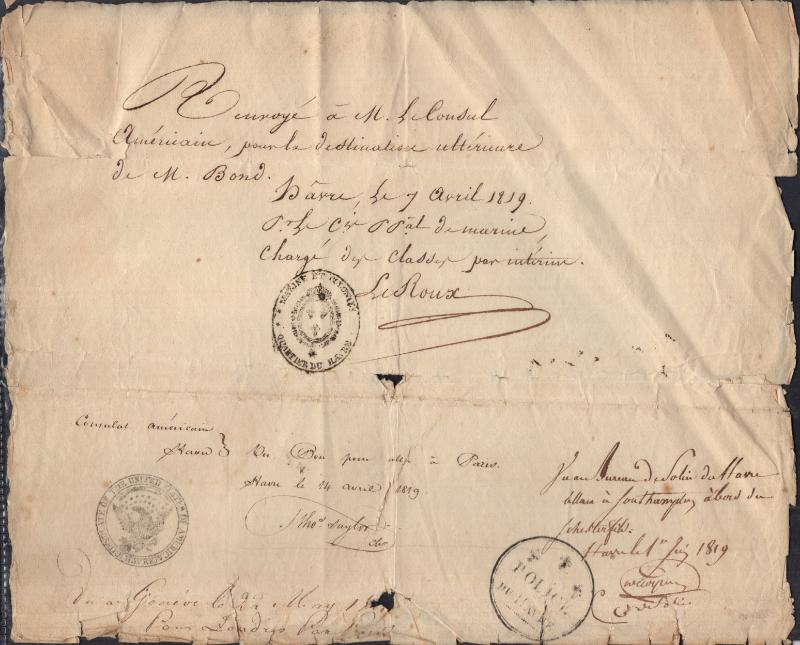 Renvoyé à M. Le Consul
Américain, pour la destination ultérieure
de M. Bond.
Hâvre, Le 7 Avril 1819.
Pr. Le Cre Ppal de marine,
Chargé des Classes par intérim.
LeRoux
MARINE ET COLONIES
QUARTIER DU HAVRE
Consulat américain
Havre } Vu Bon pour aller à Paris.
Havre le 14 avril 1819
Thos. Taylor
OF THE UNITED STATES OF
Vu au Bureau de Police du Havre
allant à Southampton à bord du
Chesterfield.
Havre le 1er Juin 1819
POLICE
DU HAVRE
Vu a Genève le 22 May
Pour Londres Par